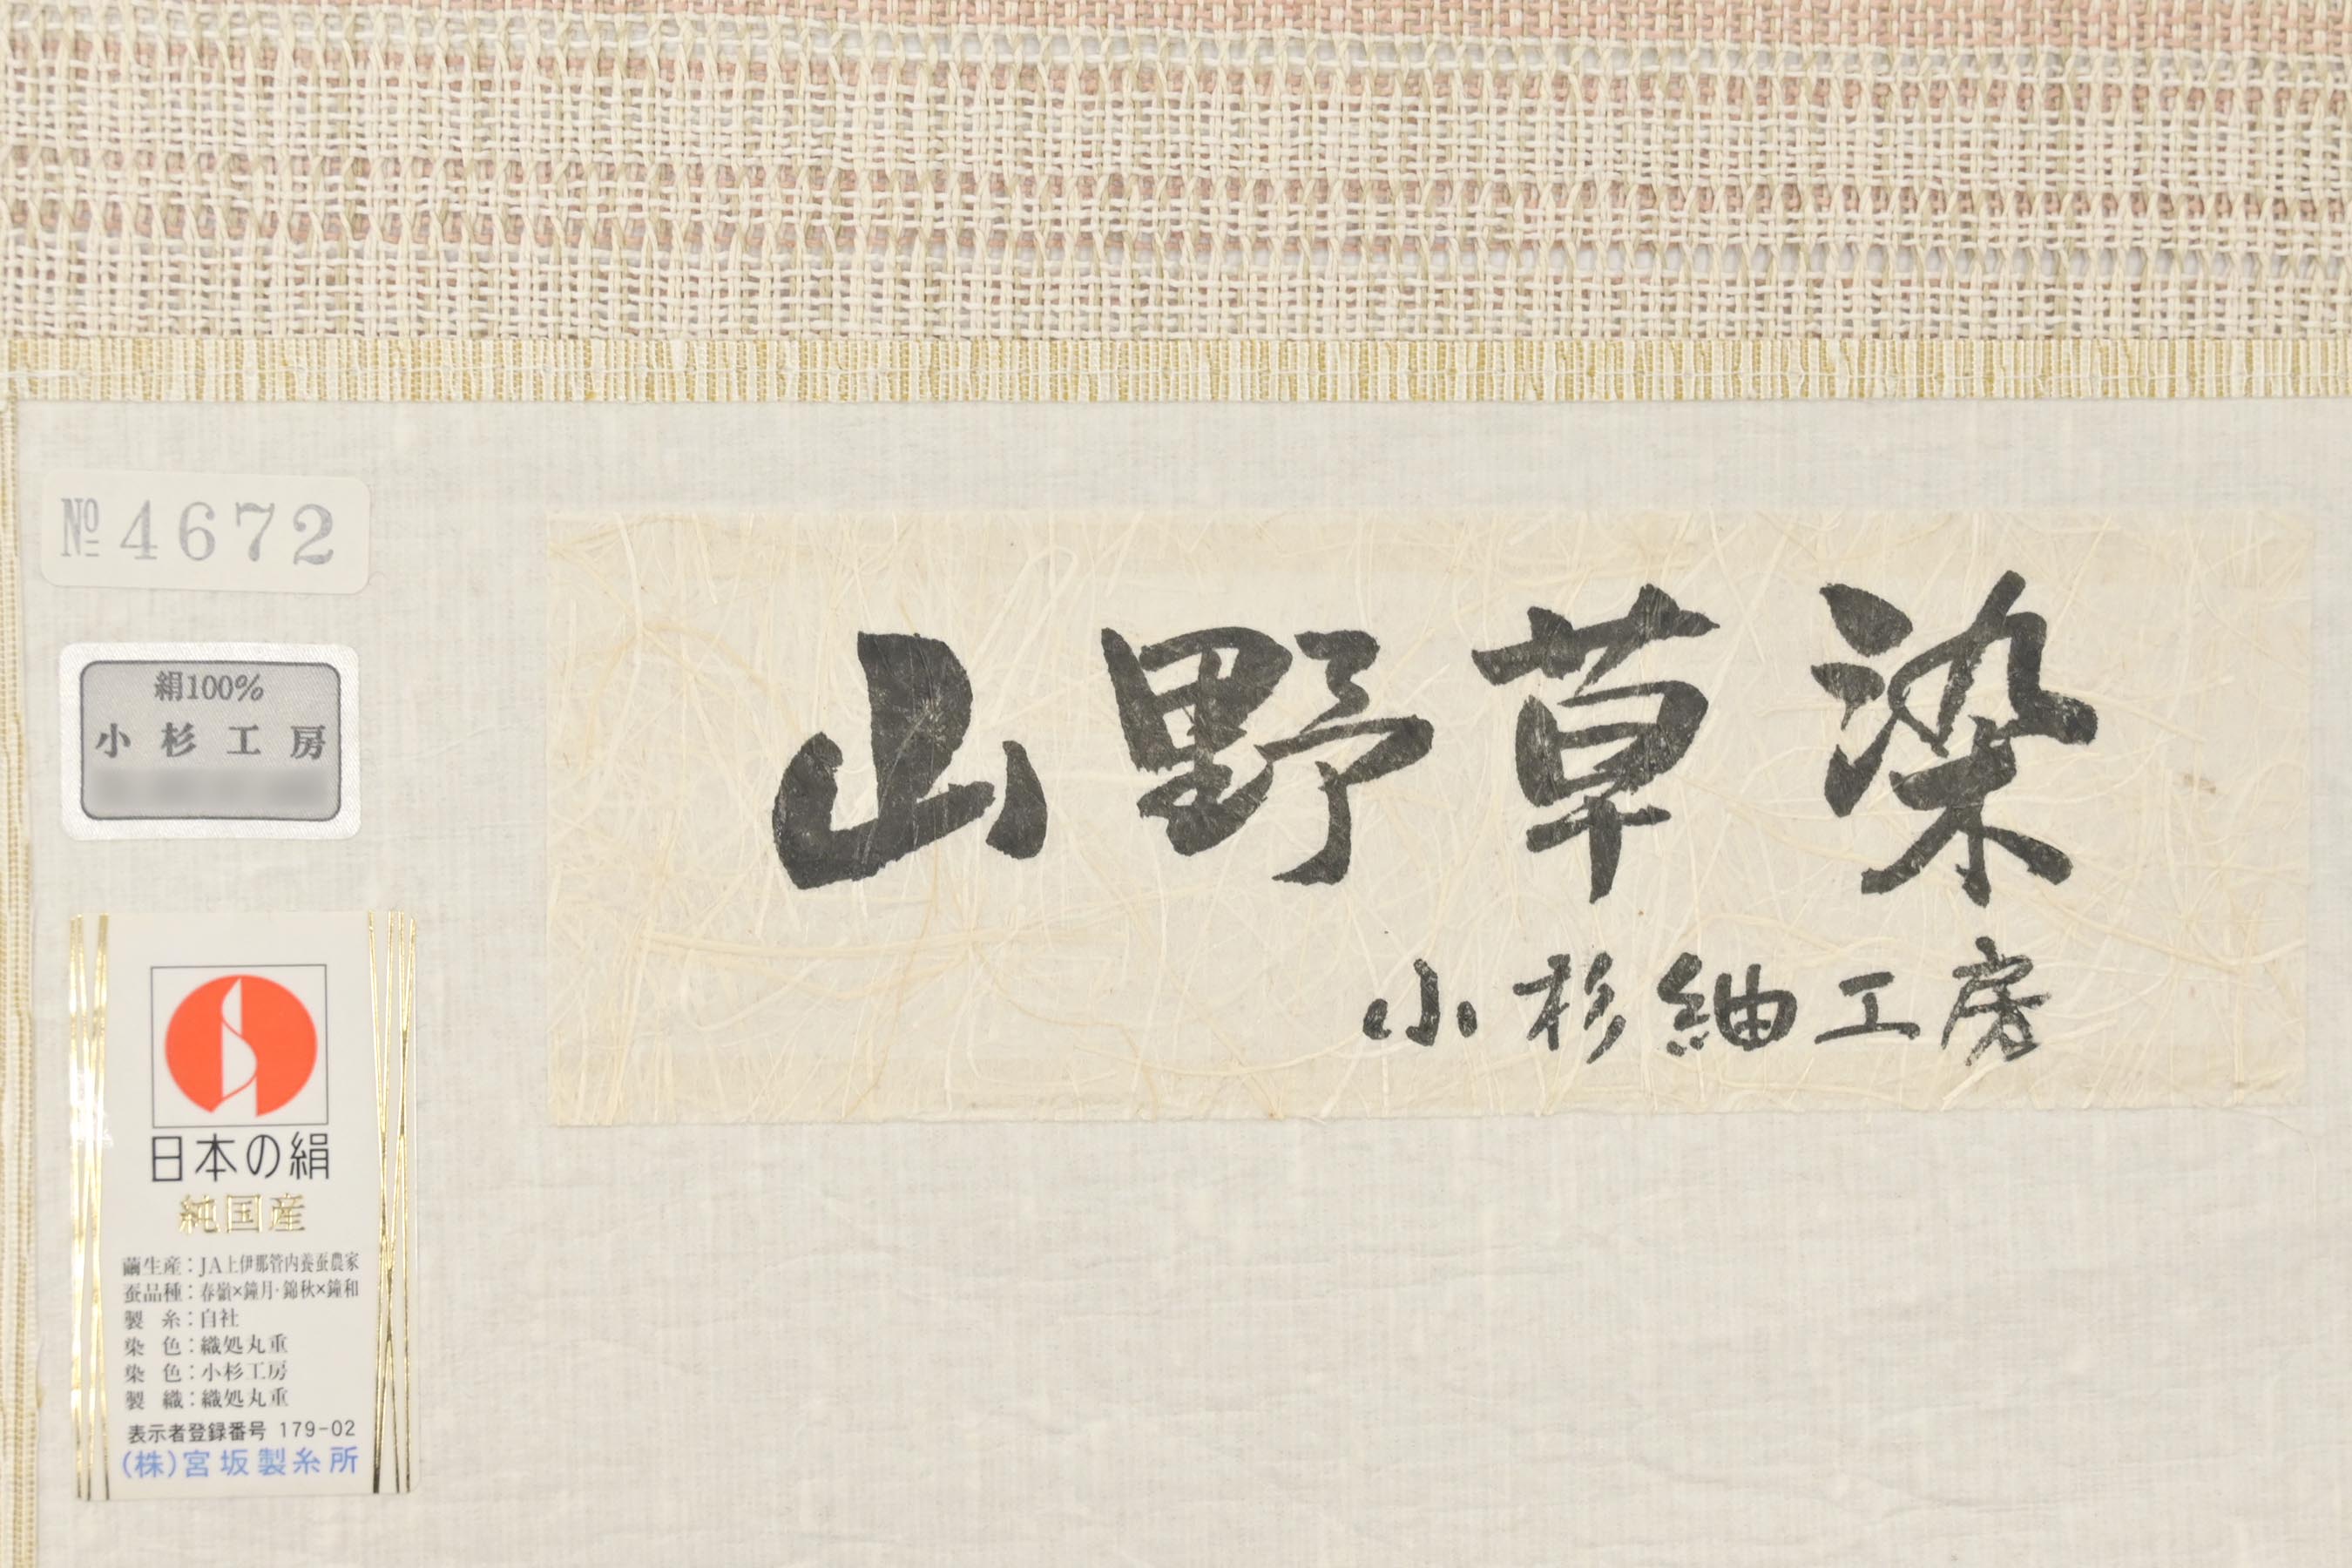 №4672
絹100%
小杉工房
日本の絹
純国産
繭生産：JA上伊那管内養蚕農家
蚕品種：春嶺×鐘月･錦秋×鐘和
製　糸：自社
染　色：織処丸重
染　色：小杉工房
製　織：織処丸重
表示者登録番号 179-02
(株)宮坂製糸所
山野草染
小杉紬工房